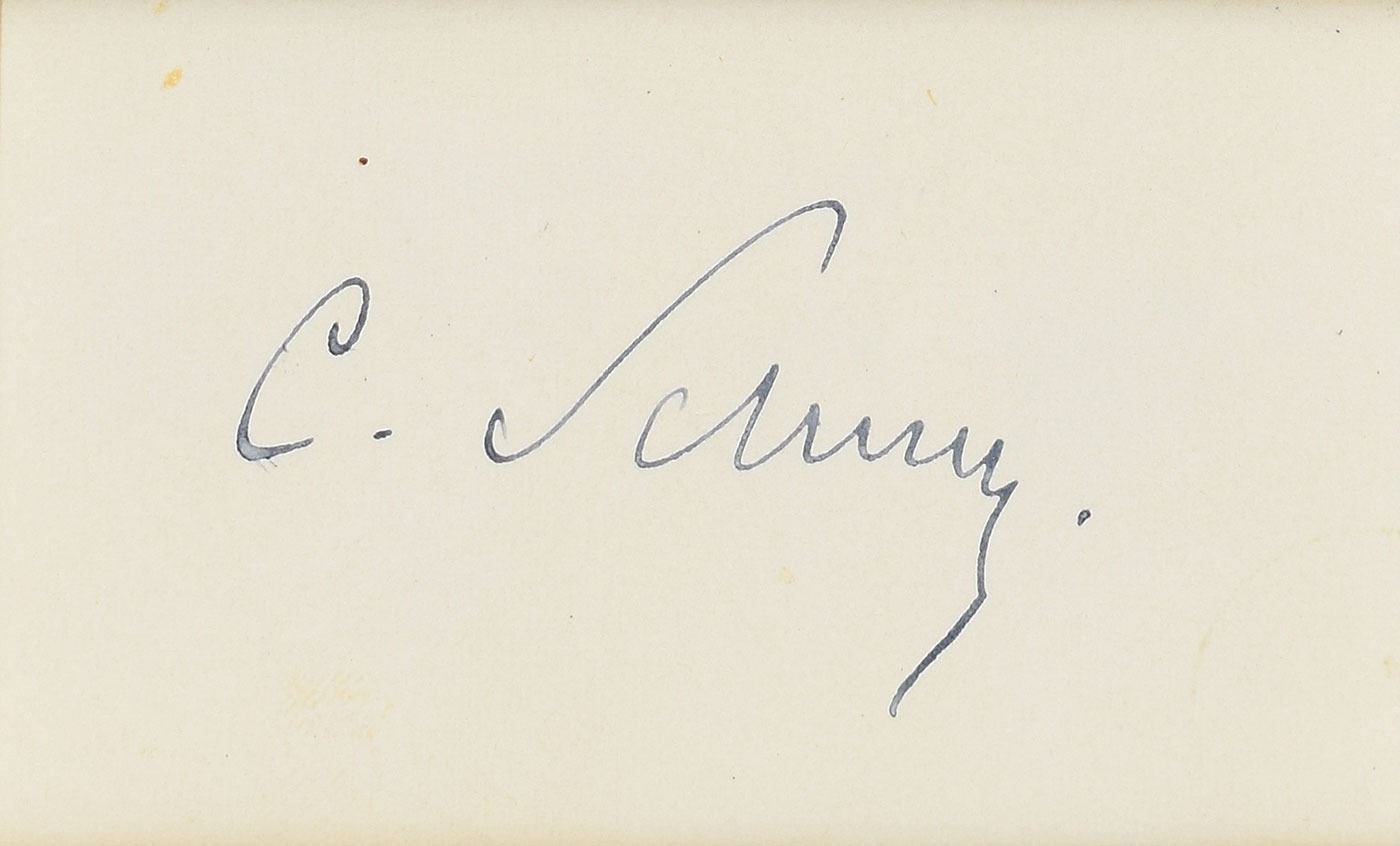 C. Schurz.